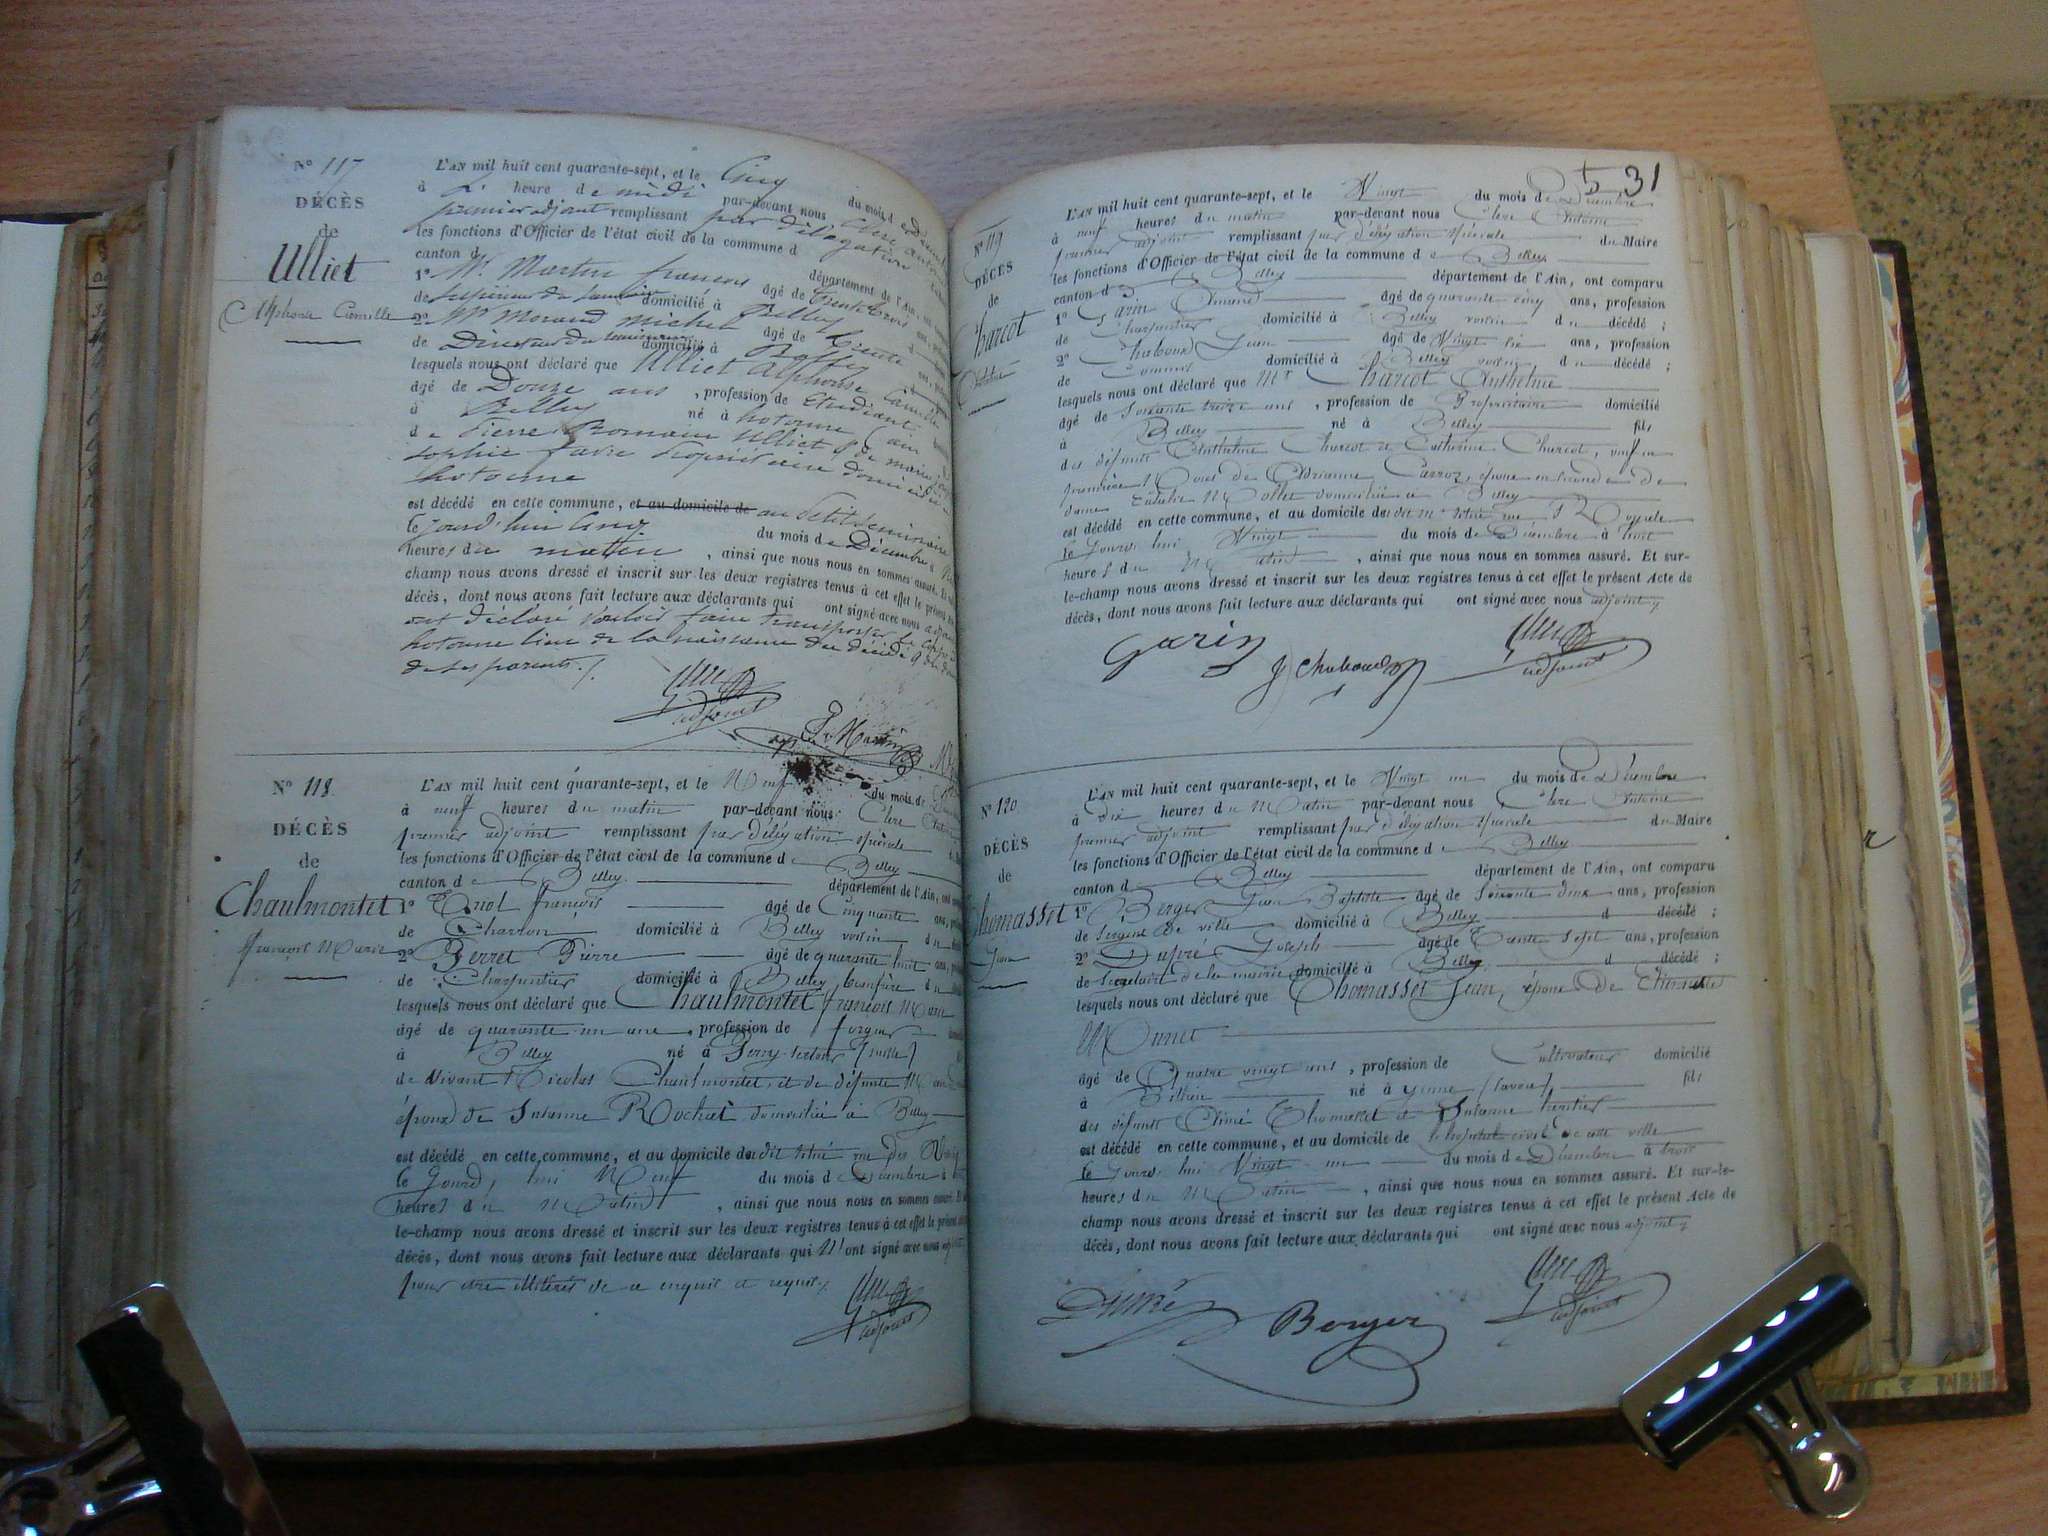 N° 117
DÉCÈS
de
Ulliet
Alphonse Camille
L'AN mil huit cent quarante-sept, et le Cinq du mois de
à L' heure de midi par-devant nous Clerc
premier adjoint remplissant par délégation
les fonctions d'Officier de l'état civil de la commune d
canton d département de l'Ain,
1° Mr. Martin françois âgé de trente trois
de Supérieur du domicilié à Belley
2° Mr Morand Michel âgé de trente
de Directeur du domicilié à
lesquels nous ont déclaré que Ulliet Alphonse Camille
âgé de Douze ans , profession de Etudiant
à Belley né à hotonne (ain
de Pierre Romain Ulliet & de marie
Sophie favre Propriétaire domicilié
hotonne
est décédé en cette commune, et au domicile de au Petit Seminaire
le Jourd'hui Cinq du mois de Décembre
heures du matin , ainsi que nous nous en sommes assuré. Et
champ nous avons dressé et inscrit sur les deux registres tenus à cet effet le présent
décès, dont nous avons fait lecture aux déclarants qui ont signé avec nous
ont déclaré vouloir faire transporter le Corps à
hotonne lieu de la naissance du décédé & de
de ses parents ./.
adjoint
N° 118
DÉCÈS
de
Chaulmontet
françois Marie
L'AN mil huit cent quarante-sept, et le Neuf du mois de
à neuf heures du matin par-devant nous Clerc
premier adjoint remplissant par délégation spéciale
les fonctions d'Officier de l'état civil de la commune de Belley
canton de Belley département de l'Ain,
1° françois âgé de Cinquante
de Charron domicilié à Belley voisin du
2° Perret Pierre âgé de quarante huit ans,
de Charpentier domicilié à Belley beaufrère du
lesquels nous ont déclaré que Chaulmontet françois Marie
âgé de quarante un ans , profession de forgeur
à Belley né à
de Vivant Nicolas Chaulmontet, et de défunte
époux de Suzanne Rochat domiciliée à Belley
est décédé en cette commune, et au domicile du dit situé rue des
le Jourd'hui Neuf du mois de Décembre à
heures du Matin , ainsi que nous nous en sommes assuré.
le-champ nous avons dressé et inscrit sur les deux registres tenus à cet effet le présent
décès, dont nous avons fait lecture aux déclarants qui N'ont signé avec nous
pour être illitérés de ce enquis et requis
adjoint
31
N° 119
DÉCÈS
de
Charcot
L'AN mil huit cent quarante-sept, et le Vingt du mois de Décembre
à neuf heures du matin par-devant nous Clerc Antoine
premier adjoint remplissant par délégation spéciale du Maire
les fonctions d'Officier de l'état civil de la commune de Belley
canton d Belley département de l'Ain, ont comparu
1° Garin âgé de quarante cinq ans, profession
de Charpentier domicilié à Belley voisin du décédé ;
2° Chaboud Jean âgé de Vingt six ans, profession
de Commis domicilié à Belley voisin du décédé ;
lesquels nous ont déclaré que Mr Charcot Anthelme
âgé de Soixante treize ans , profession de Propriétaire domicilié
à Belley né à Belley fils
des défunts Anthelme Charcot et Catherine Charcot, veuf en
premières Noces de Adrianne Carroz, époux en secondes de
dame Eulalie Mollet domiciliée à Belley
est décédé en cette commune, et au domicile du dit situé rue
le Jourd'hui Vingt du mois de Décembre à huit
heures du Matin , ainsi que nous nous en sommes assuré. Et sur-
le-champ nous avons dressé et inscrit sur les deux registres tenus à cet effet le présent Acte de
décès, dont nous avons fait lecture aux déclarants qui ont signé avec nous adjoint
Garin J Chaboud adjoint
N° 120
DÉCÈS
de
Thomasset
Jean
L'AN mil huit cent quarante-sept, et le Vingt un du mois de Décembre
à dix heures du Matin par-devant nous Clerc Antoine
premier adjoint remplissant par délégation spéciale du Maire
les fonctions d'Officier de l'état civil de la commune de Belley
canton d Belley département de l'Ain, ont comparu
1° Berger Jean Baptiste âgé de Soixante deux ans, profession
de Sergent de ville domicilié à Belley d décédé ;
2° Dupré Joseph âgé de Trente Sept ans, profession
de Secrétaire de la mairie domicilié à Belley d décédé ;
lesquels nous ont déclaré que Thomasset Jean, époux de Etiennette
âgé de Quatre vingt ans , profession de Cultivateur domicilié
à né à yenne (Savoie) fils
des défunts Thomasset et Suzanne
est décédé en cette commune, et au domicile de l'hopital civil de cette ville
le Jourd'hui Vingt un du mois de Décembre à trois
heures du Matin , ainsi que nous nous en sommes assuré. Et sur-le-
champ nous avons dressé et inscrit sur les deux registres tenus à cet effet le présent Acte de
décès, dont nous avons fait lecture aux déclarants qui ont signé avec nous adjoint
Dupré Berger adjoint